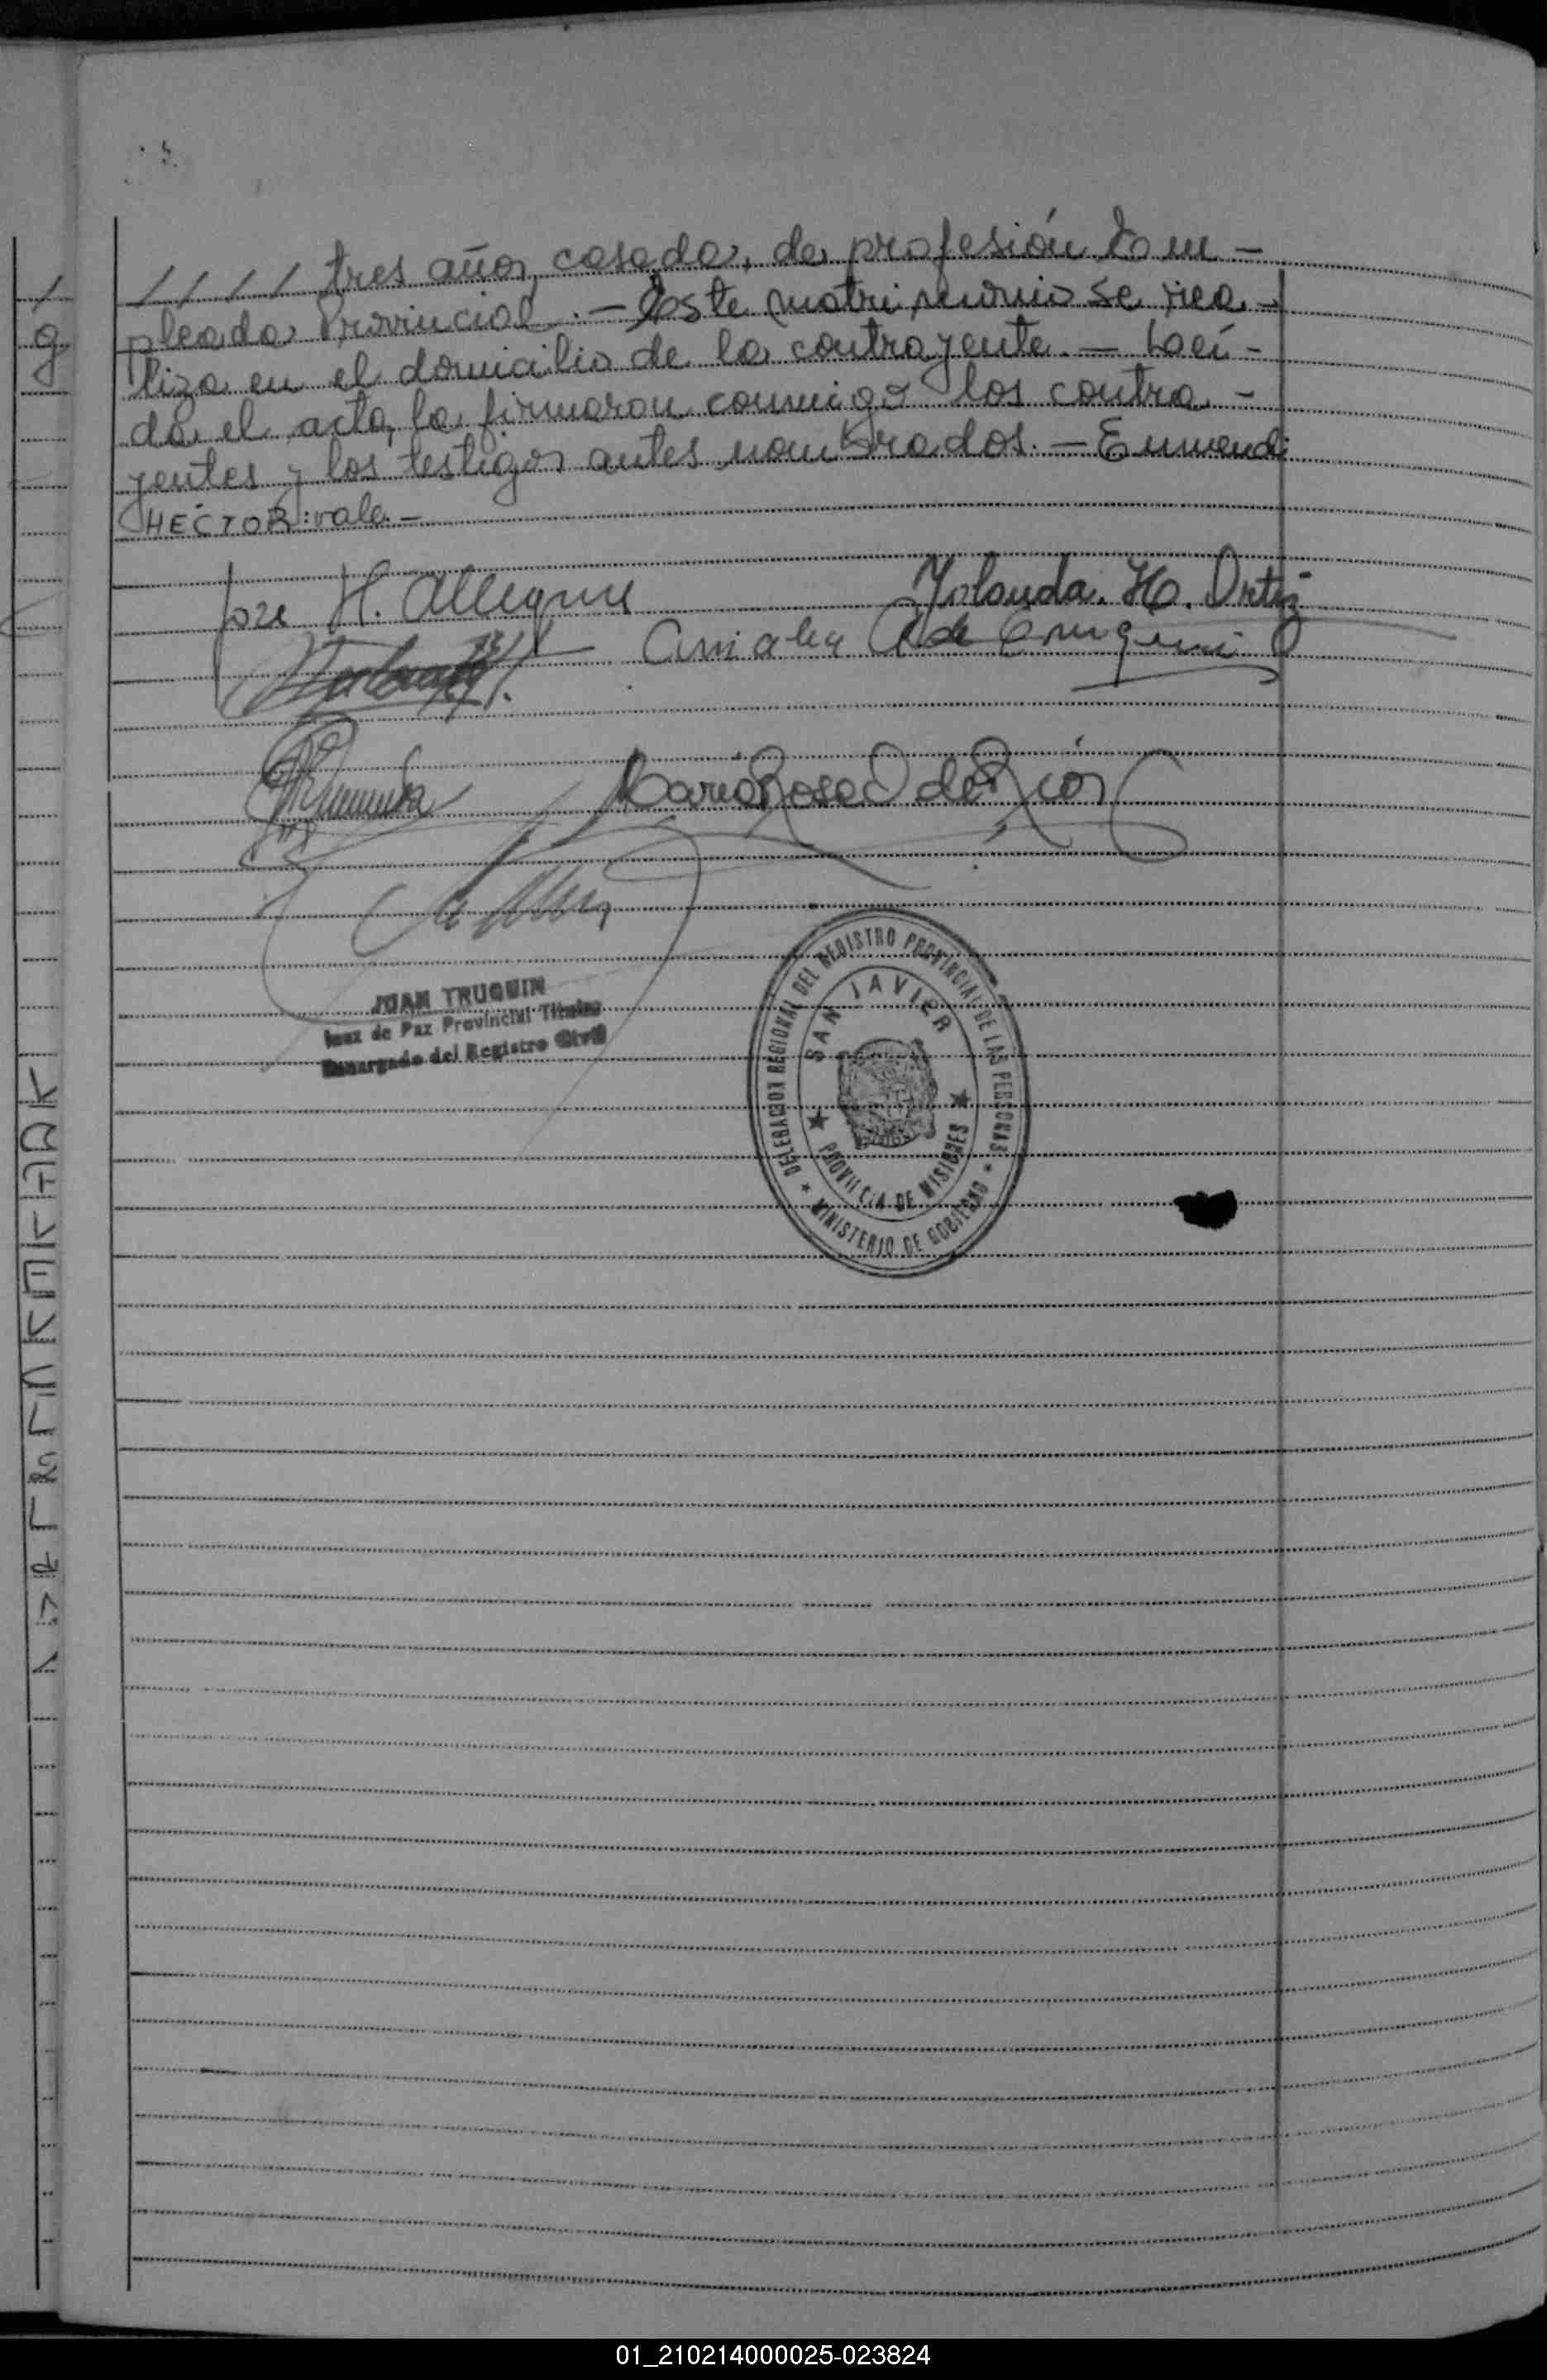 //// tres años, casada, de profesión Em-
pleada Provincial.- Este matrimonio se rea-
liza en el domicilio de la contrayente.- Leí-
da el acta, la firmaron conmigo los contra-
yentes y los testigos antes nombrados.- Enmend:
HECTOR: vale.-
Jose H. Yolanda. H. Ortiz
Amalia de
Maria Rosa de Rios
JUAN TRUQUIN
Juez de Paz Provincial Titular
Encargado del Registro Civil
DELEGACION REGIONAL DEL REGISTRO PROVINCIAL DE LAS PERSONAS
SAN JAVIER
PROVINCIA DE MISIONES
MINISTERIO DE GOBIERNO
01_210214000025-023824